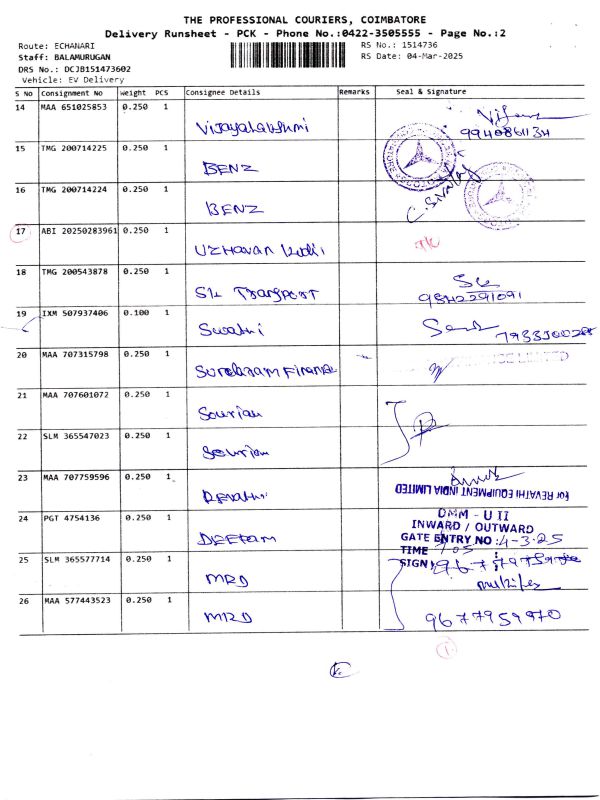 THE PROFESSIONAL COURIERS, COIMBATORE
Delivery Runsheet - PCK - Phone No.:0422-3505555 - Page No.:2
Route: ECHANARI
RS No.: 1514736
Staff: BALAMURUGAN
RS Date: 04-Mar-2025
DRS No.: DCJB151473602
Vehicle: EV Delivery
S No Consignment No Weight PCS Consignee Details Remarks Seal & Signature
14 MAA 651025853 0.250 1 Vijayalakshmi 9940861134
15 TMG 200714225 0.250 1 BENZ
16 TMG 200714224 0.250 1 BENZ
17 ABI 20250283961 0.250 1 UZHAVAN
18 TMG 200543878 0.250 1 Transport 9842291091
19 IXM 507937406 0.100 1 Swathi
20 MAA 707315798 0.250 1 LIMITED
21 MAA 707601072 0.250 1
22 SLM 365547023 0.250 1
23 MAA 707759596 0.250 1 Revathi For REVATHI EQUIPMENT INDIA LIMITED
24 PGT 4754136 0.250 1 DMM - U II
INWARD / OUTWARD
GATE ENTRY NO :4-3-25
TIME
SIGN
25 SLM 365577714 0.250 1 MRD
26 MAA 577443523 0.250 1 MRD 9677959970